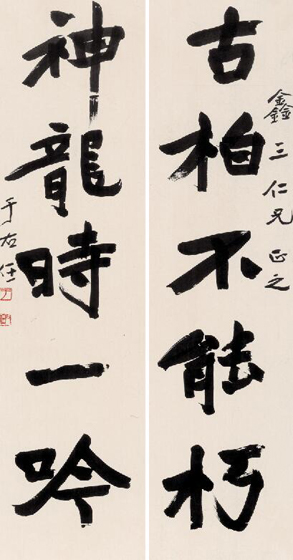 古柏不能朽
鑫三仁兄正之
神龍時一吟
于右任